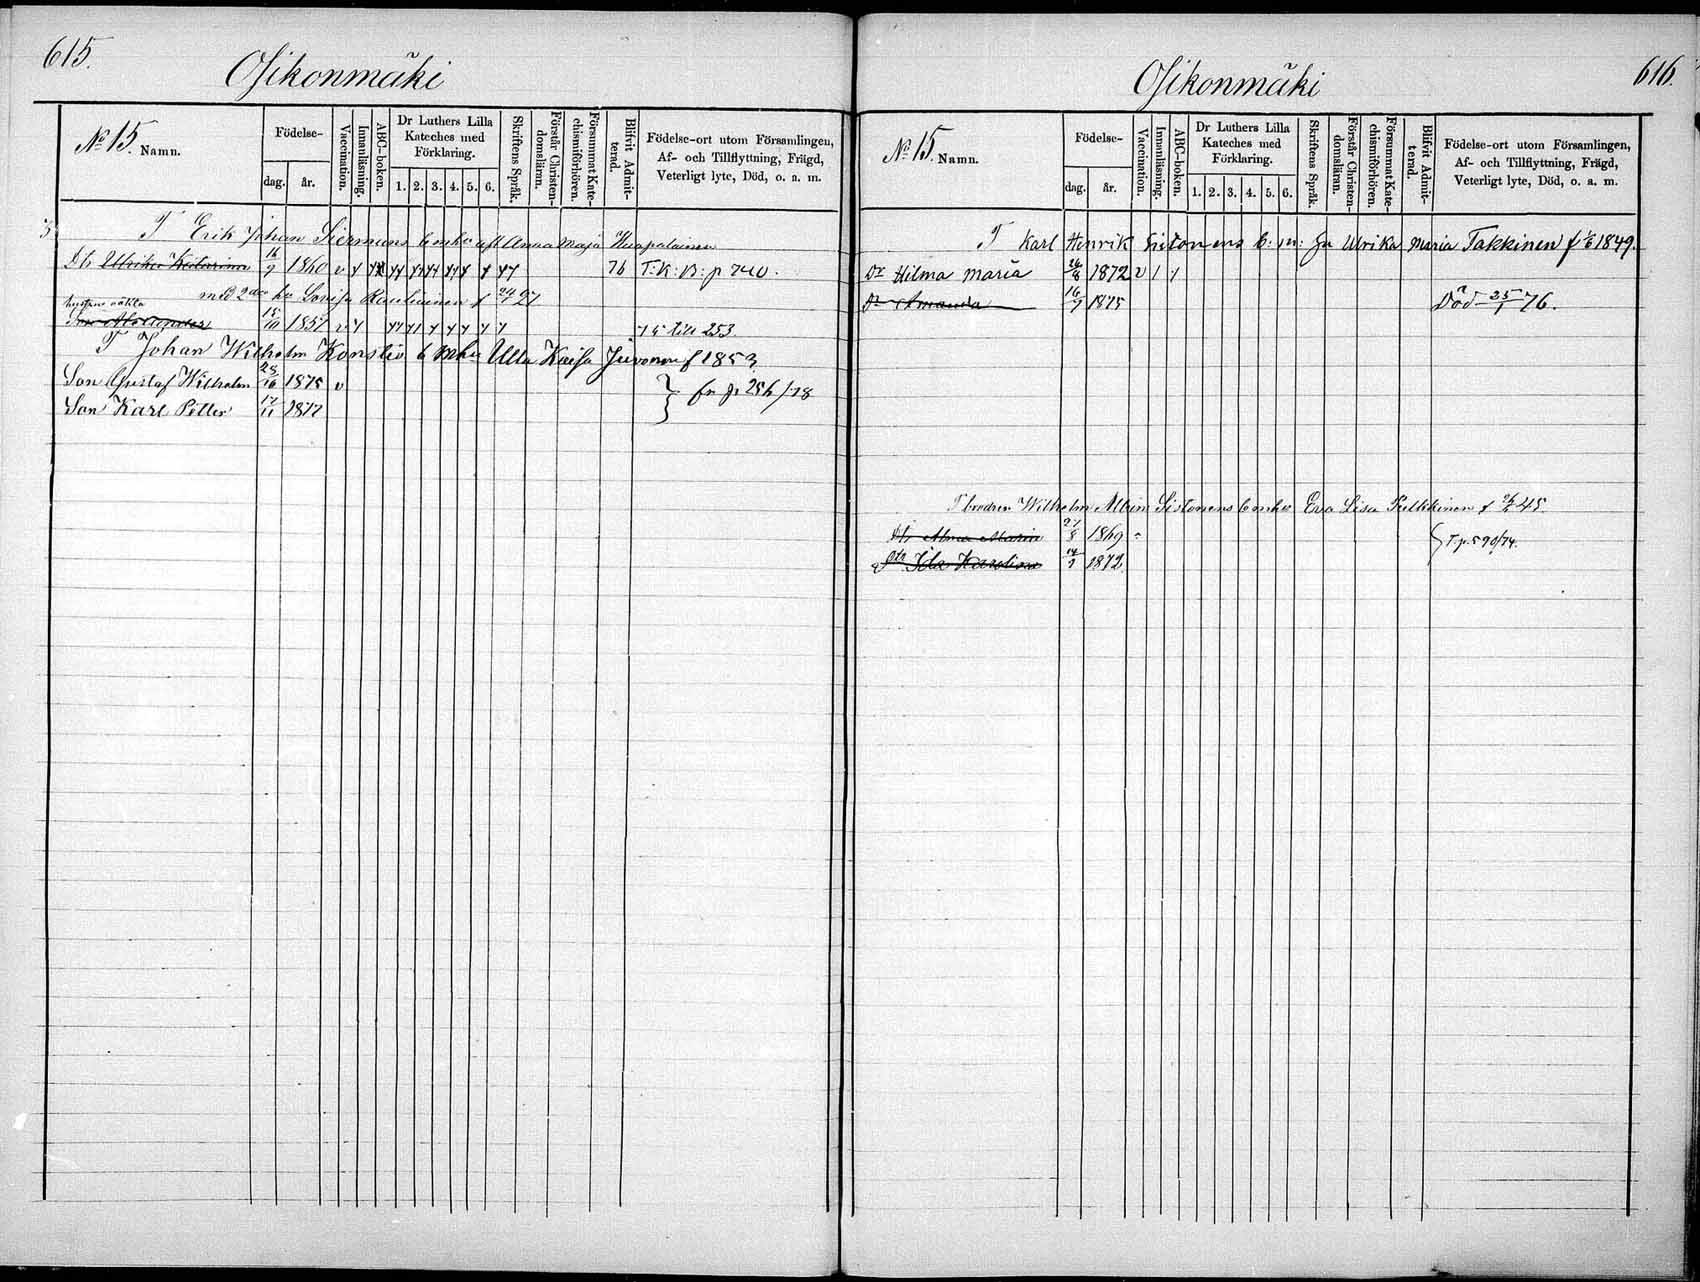 615.
Osikonmäki
No 15. Namn.
Födelse-
dag.
år.
Vaccination.
Innanläsning.
ABC-boken.
Dr Luthers Lilla
Kateches med
Förklaring.
1. 2. 3. 4. 5. 6.
Skriftens Språk.
Förstår Christen-
domsläran.
Försummat Kate-
chismiförhören.
Blifvit Admit-
terad.
Födelse-ort utom Församlingen,
Af- och Tillflyttning, Frägd,
Veterligt lyte, Död, o. a. m.
3
T Erik Johan Siermans b mhu afl Anna Maja Haapalainen
Dtr Ulrika Katarina 16/9 1860 v 76 T: K: B: p 740.
med 2dra hu Lovisa Rautiainen f 24/7 27
hustruns oäkta
Son 15/10 1857 v 253
T Johan Wilhelm Konstig b mhu Ulla Kaisa Juvonen f 1853
Son Gustaf Wilhelm 28/10 1875 v
fr p. 256/78
Son Karl Petter 17/11 1877
616.
Osikonmäki
No 15. Namn.
Födelse-
dag.
år.
Vaccination.
Innanläsning.
ABC-boken.
Dr Luthers Lilla
Kateches med
Förklaring.
1. 2. 3. 4. 5. 6.
Skriftens Språk.
Förstår Christen-
domsläran.
Försummat Kate-
chismiförhören.
Blifvit Admit-
terad.
Födelse-ort utom Församlingen,
Af- och Tillflyttning, Frägd,
Veterligt lyte, Död, o. a. m.
T Karl Henrik Sistonens b: m: hu Ulrika Maria Takkinen f 1/6 1849.
Dr Hilma Maria 26/8 1872 v
Dr Amanda 16/9 1875 Död 25/1 76.
T brodren Wilhelm Albin Sistonens b mhu Eva Lisa Pulkkinen f 45.
Dtr Alma Maria 27/8 1869
T. p. 590/74.
Dtr Ida Karolina 14/9 1872.